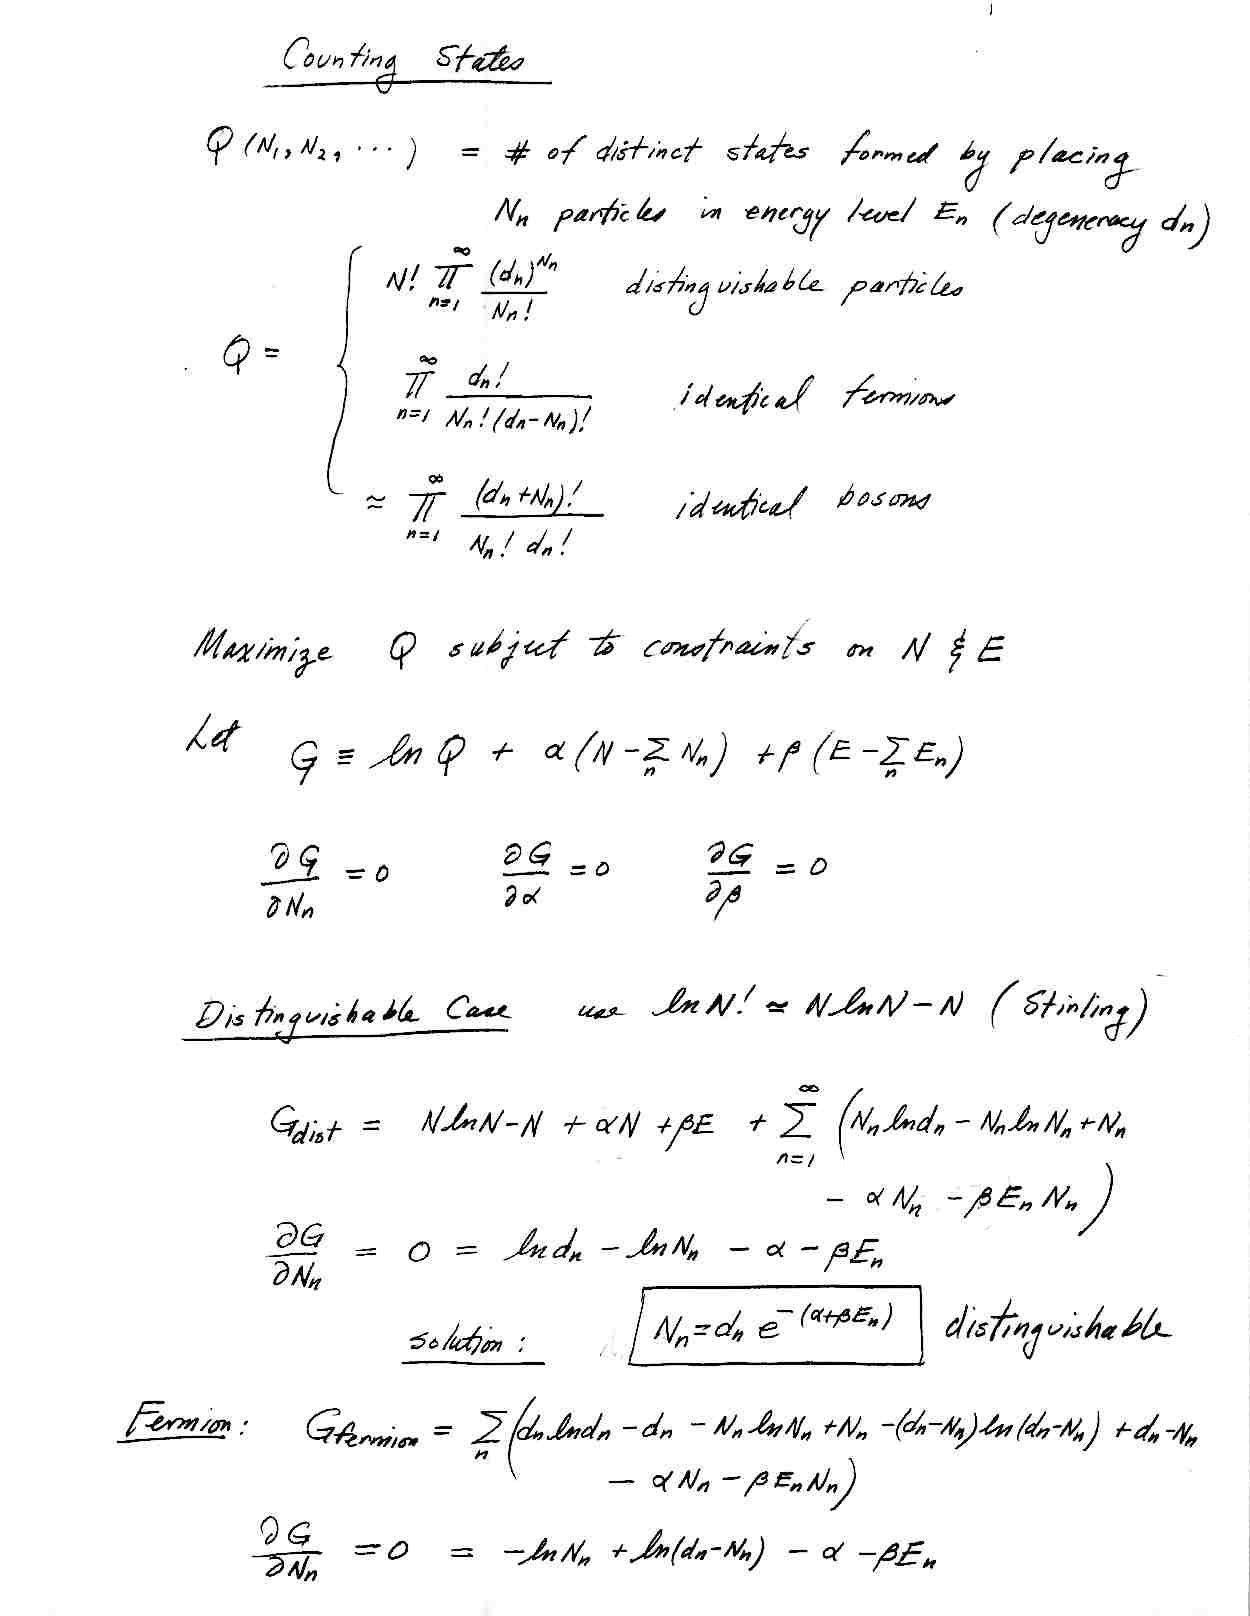 Counting States
Q (N₁, N₂, ⋯) = # of distinct states formed by placing
Nₙ particles in energy level Eₙ (degeneracy dₙ)
Q = { N! ∏_{n=1}^{∞} (dₙ)^{Nₙ} / Nₙ! distinguishable particles
∏_{n=1}^{∞} dₙ! / Nₙ! (dₙ-Nₙ)! identical fermions
≈ ∏_{n=1}^{∞} (dₙ+Nₙ)! / Nₙ! dₙ! identical bosons
Maximize Q subject to constraints on N & E
Let G ≡ ln Q + α (N - Σₙ Nₙ) + β (E - Σₙ Eₙ)
∂G/∂Nₙ = 0 ∂G/∂α = 0 ∂G/∂β = 0
Distinguishable Case use ln N! ≃ N ln N - N (Stirling)
G_dist = N ln N - N + αN + βE + Σ_{n=1}^{∞} (Nₙ ln dₙ - Nₙ ln Nₙ + Nₙ
- αNₙ - βEₙNₙ)
∂G/∂Nₙ = 0 = ln dₙ - ln Nₙ - α - βEₙ
solution: Nₙ = dₙ e^{-(α+βEₙ)} distinguishable
Fermion: G_fermion = Σₙ (dₙ ln dₙ - dₙ - Nₙ ln Nₙ + Nₙ - (dₙ-Nₙ) ln (dₙ-Nₙ) + dₙ-Nₙ
- αNₙ - βEₙNₙ)
∂G/∂Nₙ = 0 = -ln Nₙ + ln(dₙ-Nₙ) - α - βEₙ